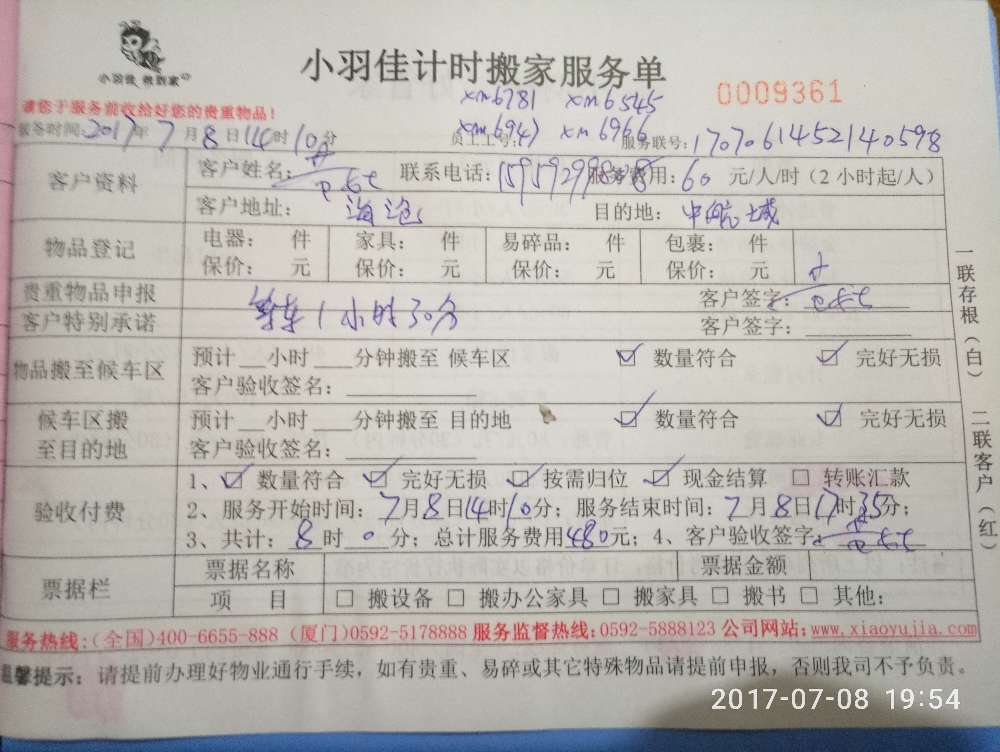 小羽佳 做到家
小羽佳计时搬家服务单
0009361
请您于服务前收给好您的贵重物品!
xm6781 xm6545
服务时间:2017年7月8日14时10分 员工工号: xm6947 xm6966 服务联号:1707061452140598
客户资料
客户姓名: 联系电话: 服务费用:60 元/人/时(2小时起/人)
客户地址: 海沧 目的地: 中航城
物品登记
电器: 件 家具: 件 易碎品: 件 包裹: 件
保价: 元 保价: 元 保价: 元 保价: 元
贵重物品申报 客户签字:
客户特别承诺 等车1小时30分 客户签字:
物品搬至候车区
预计 小时 分钟搬至 候车区 ☑ 数量符合 ☑ 完好无损
客户验收签名:
候车区搬至目的地
预计 小时 分钟搬至 目的地 ☑ 数量符合 ☑ 完好无损
客户验收签名:
验收付费
1、☑ 数量符合 ☑ 完好无损 ☑ 按需归位 ☑ 现金结算 □ 转账汇款
2、服务开始时间:7月8日14时10分;服务结束时间:7月8日17时35分;
3、共计:8时0分;总计服务费用480元;4、客户验收签字
票据栏
票据名称 票据金额
项 目 □ 搬设备 □ 搬办公家具 □ 搬家具 □ 搬书 □ 其他:
一联存根(白) 二联客户(红)
服务热线:(全国)400-6655-888 (厦门)0592-5178888 服务监督热线:0592-5888123 公司网站:www.xiaoyujia.com
温馨提示:请提前办理好物业通行手续,如有贵重、易碎或其它特殊物品请提前申报,否则我司不予负责。
2017-07-08 19:54